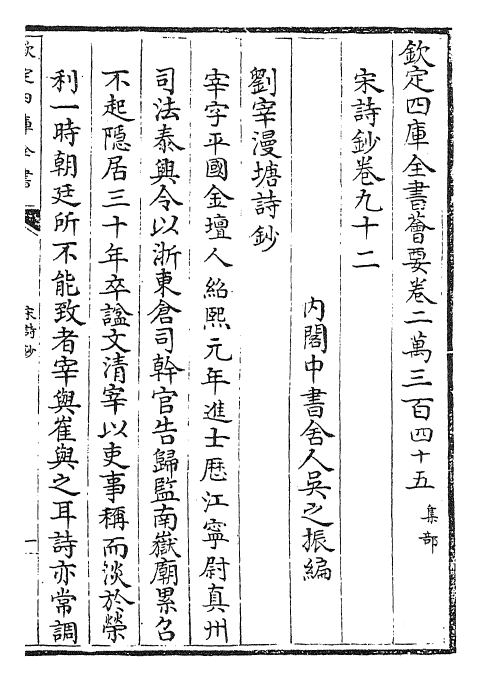 欽定四庫全書薈要卷二萬三百四十五 集部
宋詩鈔卷九十二
內閣中書舍人吳之振編
劉宰漫塘詩鈔
宰字平國金壇人紹熙元年進士歷江寧尉真州
司法泰興令以浙東倉司幹官告歸監南嶽廟累召
不起隠居三十年卒諡文清宰以吏事稱而淡於榮
利一時朝廷所不能致者宰與崔與之耳詩亦常調
欽定四庫全書
宋詩鈔
一